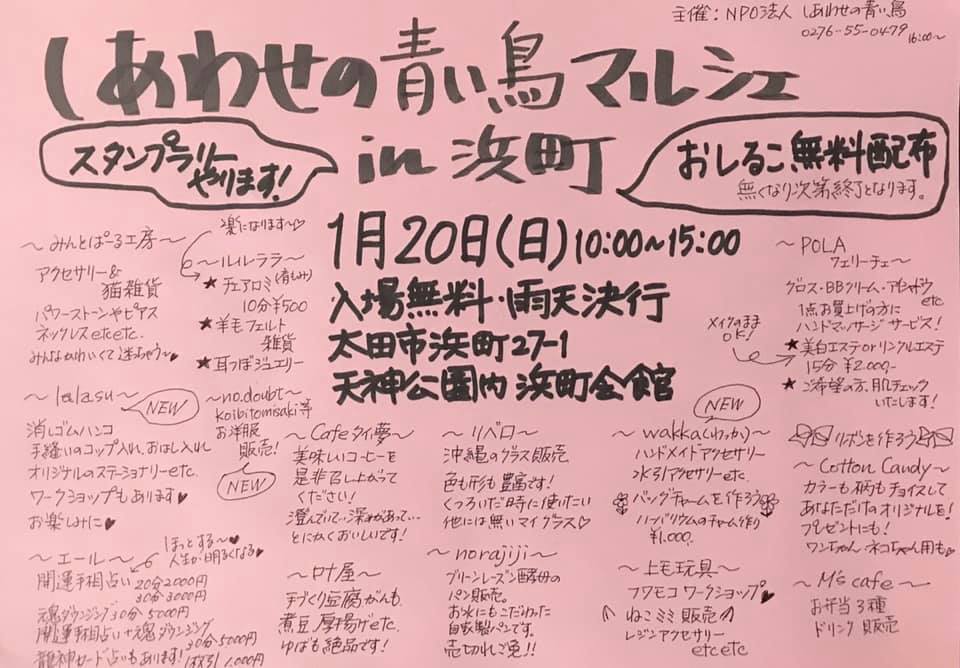 主催：NPO法人 しあわせの青い鳥
0276-55-0479
16:00～
しあわせの青い鳥マルシェ
in 浜町
スタンプラリー
やります！
おしるこ無料配布
無くなり次第終了となります。
1月20日(日)10:00～15:00
入場無料・雨天決行
太田市浜町27-1
天神公園内 浜町会館
～みんとぱーる工房～
アクセサリー＆
猫雑貨
パワーストーンやピアス
ネックレスetcetc.
みんなかわいくて迷ちゃう～♥
楽になります～♡
～ルルララ～
★チェアロミ(肩もみ)
10分¥500
★羊毛フェルト
雑貨
★耳つぼジュエリー
～POLA
フェリーチェ～
グロス・BBクリーム・アイシャドウ
etc
1点お買上げの方に
ハンドマッサージサービス！
メイクのまま
OK！
★美白エステorリンクルエステ
15分 ¥2,000-
★ご希望の方、肌チェック
いたします！
～lalasu～
NEW
消しゴムハンコ
手縫いのコップ入れ、おはし入れ
オリジナルのステーショナリーetc.
ワークショップもあります♥
お楽しみに♥
～no.doubt～
koibitomisaki等
お洋服
販売！
NEW
～Cafeタイム夢～
美味しいコーヒーを
是非召し上がって
ください！
澄んでいて、深みがあって…
とにかくおいしいです！
～リベロ～
沖縄のグラス販売
色も形も豊富です！
くつろいだ時に使いたい
他には無いマイグラス♡
NEW
～wakka(わっか)～
ハンドメイドアクセサリー
水引アクセサリーetc.
バッグチャームを作ろう
ハーバリウムのチャーム作り
¥1,000-
リボンを作ろう
～Cotton Candy～
カラーも柄もチョイスして
あなただけのオリジナルを！
プレゼントにも！
ワンちゃん、ネコちゃん用も♥
～エール～
ほっとする～♥
人生が明るくなる♥
開運手相占い 20分2000円
30分3000円
魂ダウンジング30分5000円
開運手相占い＋魂ダウンジング
30分5000円
龍神カード占いもあります！1枚引1,000円
～叶屋～
手づくり豆腐、がんも、
煮豆、厚揚げetc.
ゆばも絶品です！
～norajiji～
グリーンレーズン酵母の
パン販売。
お水にもこだわった
自家製パンです。
売切れご免！！
～上毛玩具～
フワモコワークショップ♥
ねこミミ販売
レジンアクセサリー
etcetc
～M's cafe～
お弁当3種
ドリンク販売